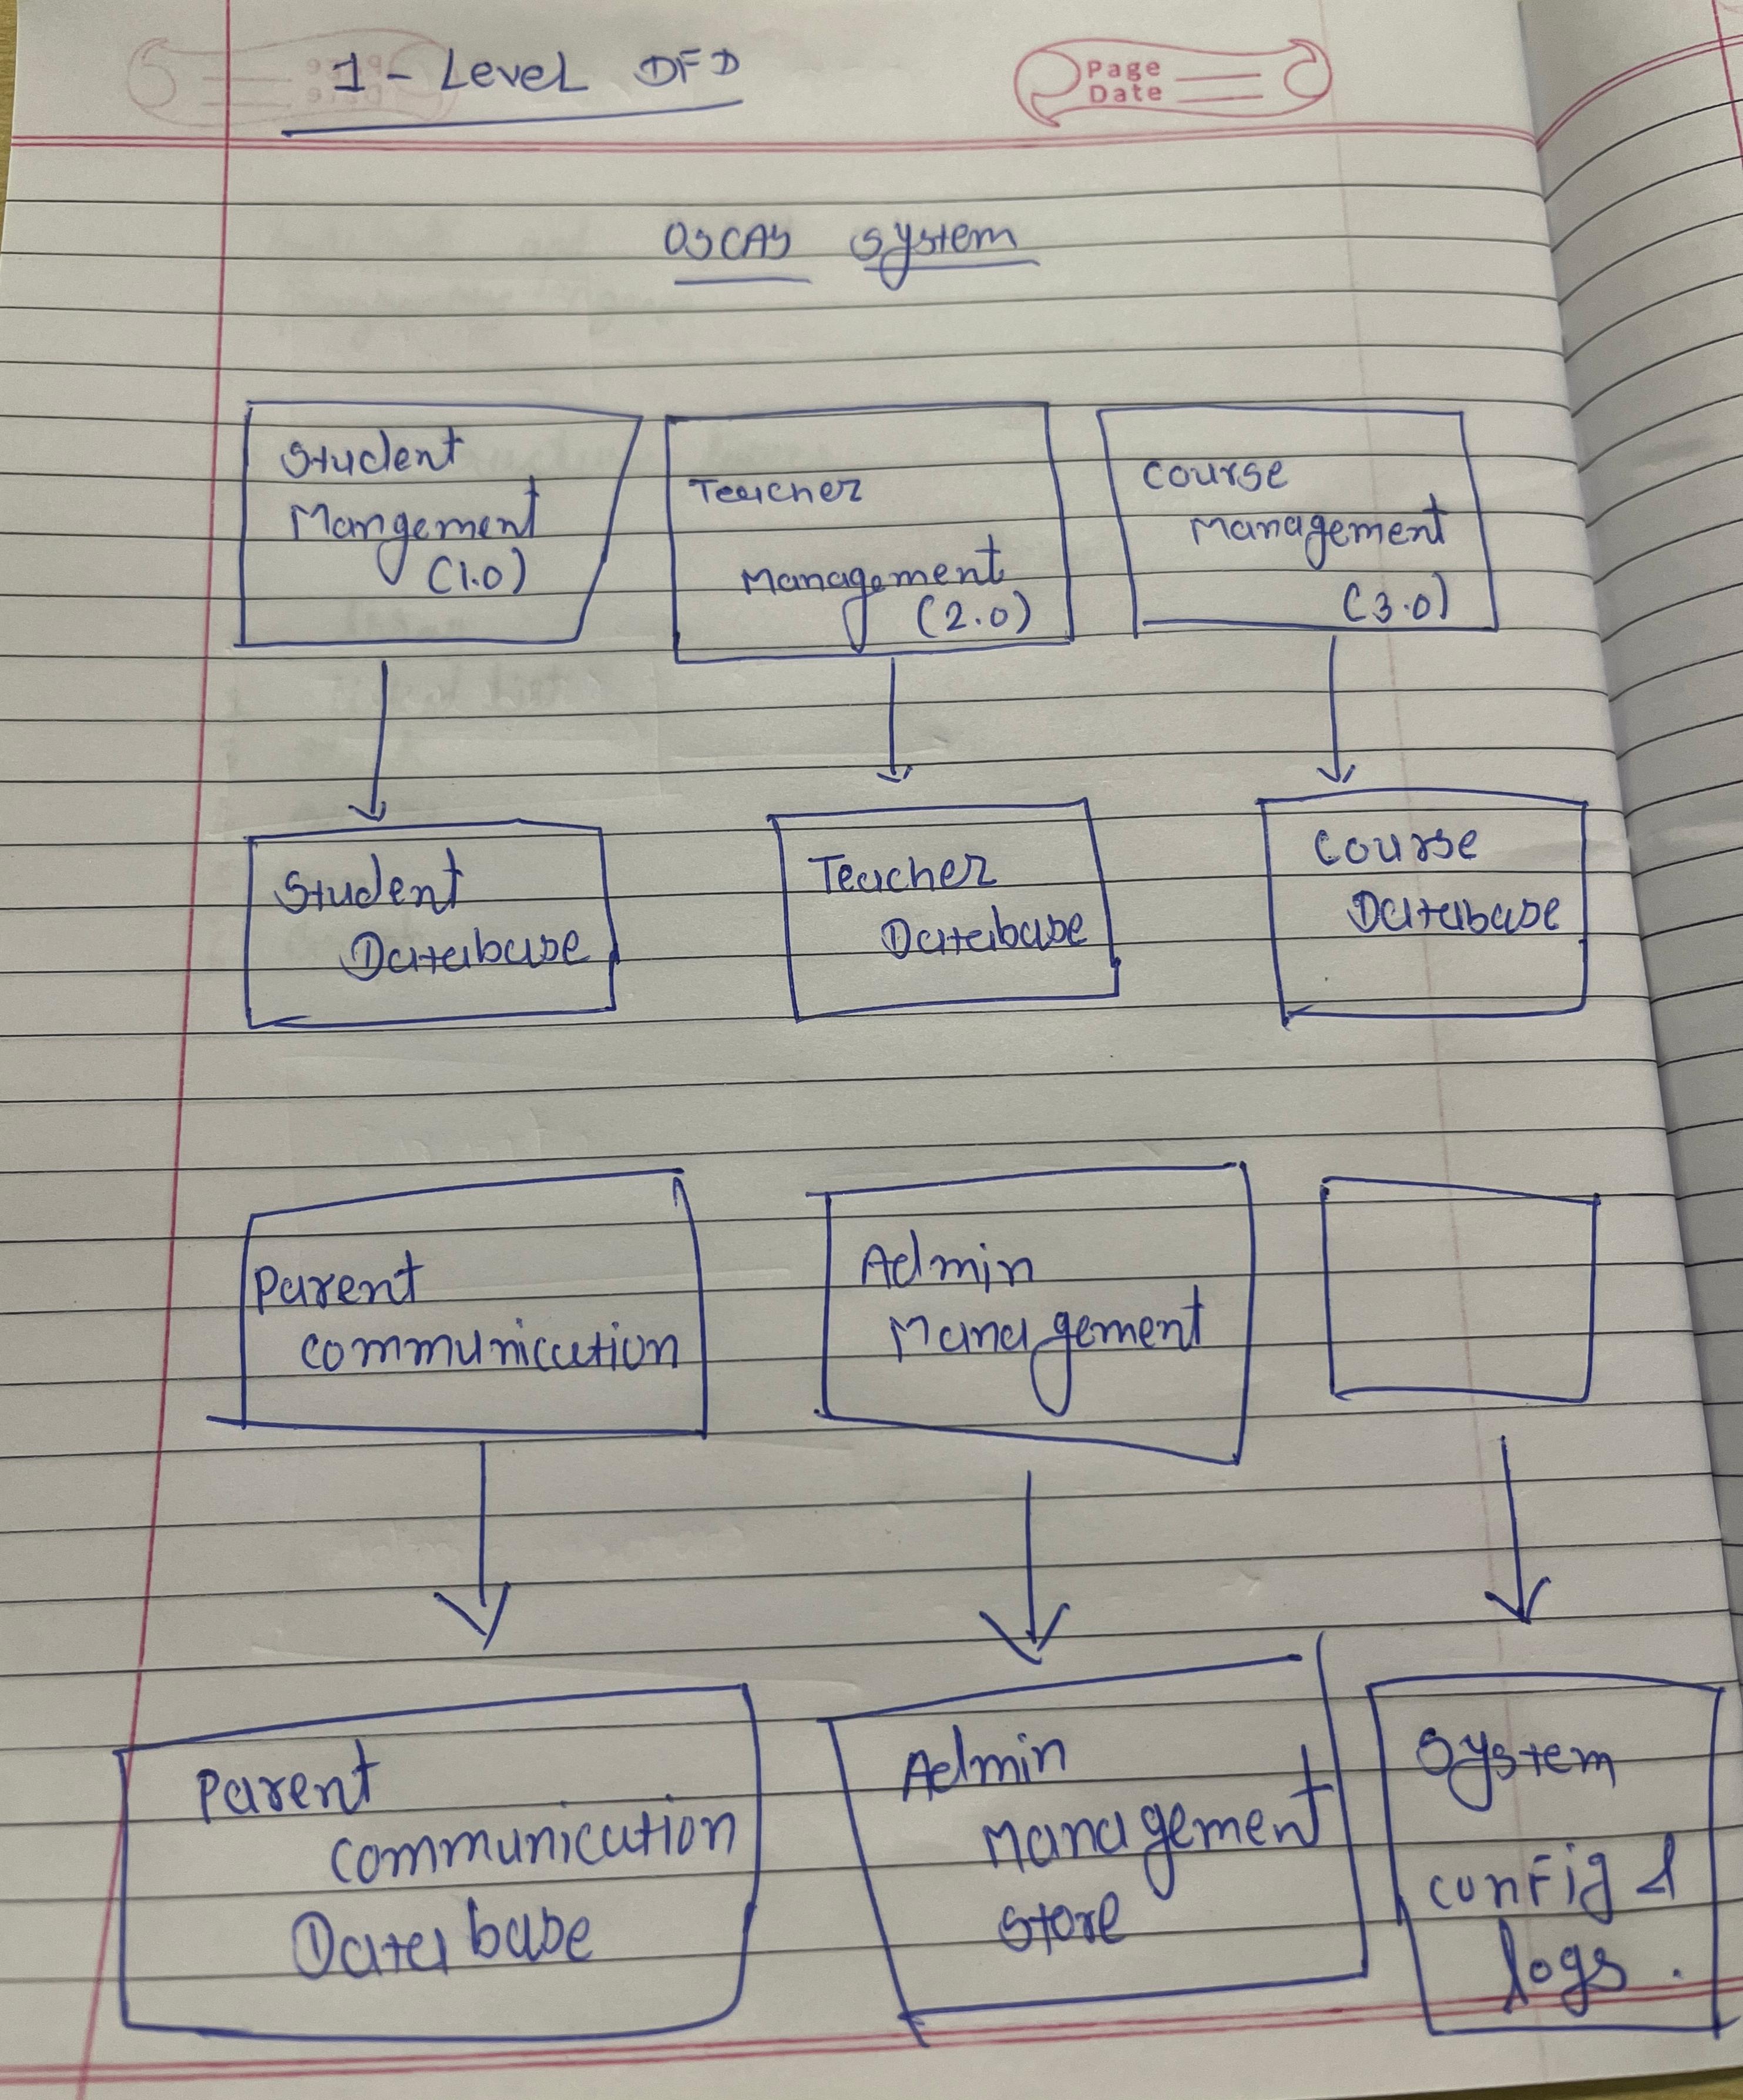 1 - Level DFD
Page
Date
System
Student
Mangement
(1.0)
Teacher
Management
(2.0)
Course
Management
(3.0)
Student
Database
Teacher
Database
Course
Database
Parent
communication
Admin
Management
Parent
communication
Database
Admin
Management
store
System
config &
logs.